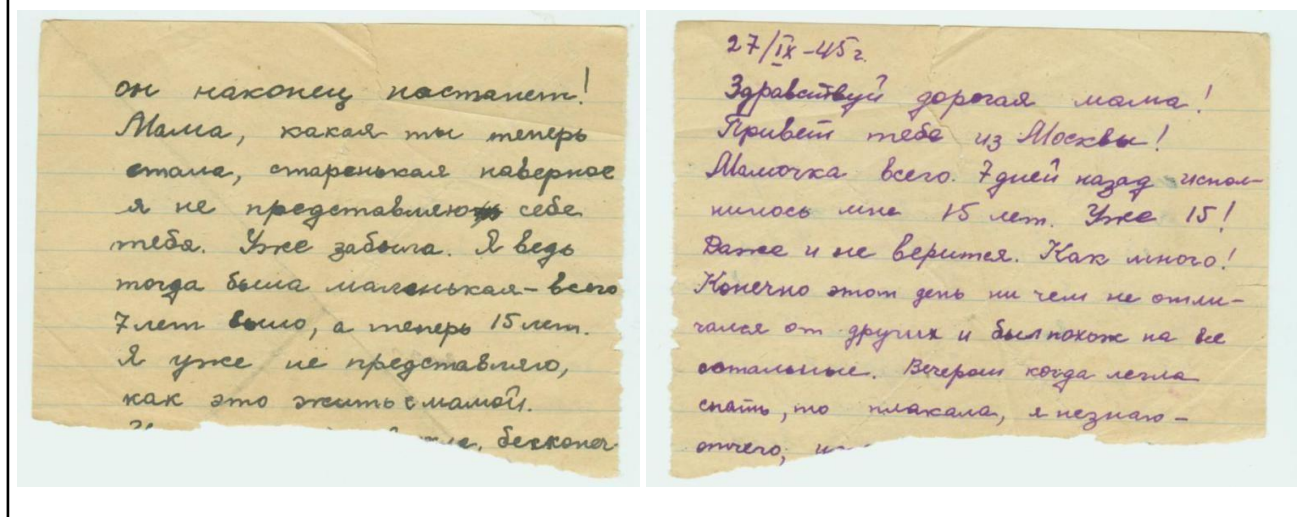 он наконец настанет!
Мама, какая ты теперь
стала, старенькая наверное
я не представляю себе
тебя. Уже забыла. Я ведь
тогда была маленькая – всего
7 лет было, а теперь 15 лет.
Я уже не представляю,
как это жить с мамой.
бесконеч
27/IX-45г.
Здравствуй дорогая мама!
Привет тебе из Москвы!
Мамочка всего 7 дней назад испол-
нилось мне 15 лет. Уже 15!
Даже и не верится. Как много!
Конечно этот день ни чем не отли-
чался от других и был похож на все
остальные. Вечером когда легла
спать, то плакала, я незнаю –
отчего,